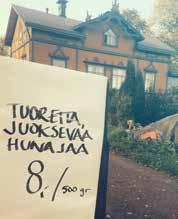 TUORETTA
JUOKSEVAA
HUNAJAA
8,-/500 gr